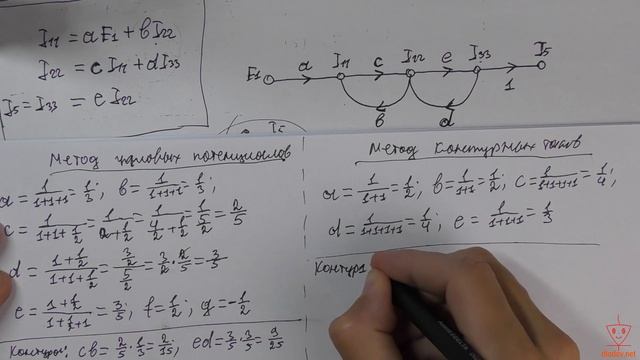 I₁₁ = aE₁ + bI₂₂
I₂₂ = cI₁₁ + dI₃₃
I₅ = I₃₃ = eI₂₂
E₁ a I₁₁ c I₂₂ e I₃₃ 1 I₅
b d
Метод узловых потенциалов
a = 1/(1+1+1) = 1/3; b = 1/(1+1+1) = 1/3;
c = 1/(1+1+1/2) = 1/(2+1/2) = 1/(4/2+1/2) = 1/(5/2) = 2/5
d = (1+1/2)/(1+1+1/2) = (3/2)/(5/2) = 3/2 · 2/5 = 3/5
e = (1+1/2)/(1+1/2+1) = 3/5; f = 1/2; g = -1/2
Контуры: cb = 2/5 · 1/3 = 2/15; ed = 3/5 · 3/5 = 9/25
Метод контурных токов
a = 1/(1+1) = 1/2; b = 1/(1+1) = 1/2; c = 1/(1+1+1+1) = 1/4;
d = 1/(1+1+1+1) = 1/4; e = 1/(1+1+1) = 1/3
Контур
diodov.net